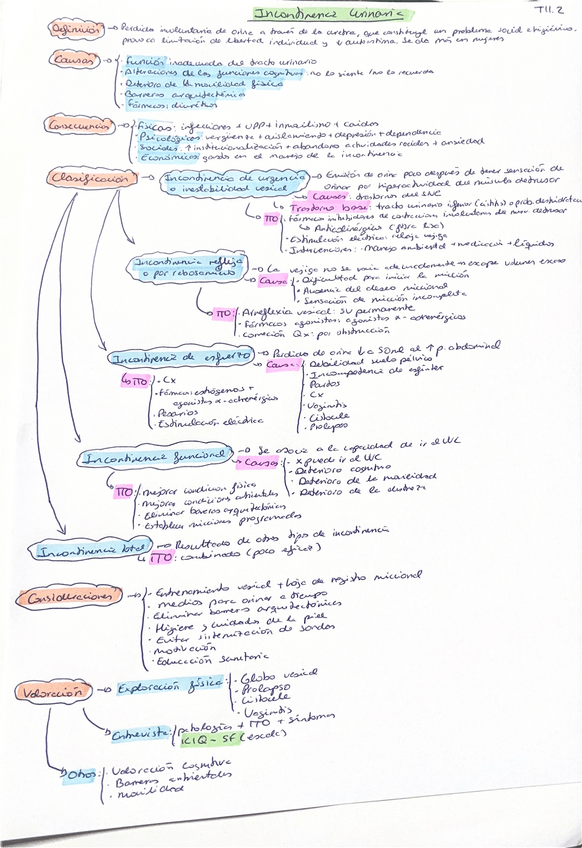 Incontinencia Urinaria
T11.2
Definición → Perdida involuntaria de orina a través de la uretra, que constituye un problema social e higiénico.
provoca limitación de libertad individual y ↓ autoestima. Se da más en mujeres
Causas → · Función inadecuada del tracto urinario
· Alteraciones de las funciones cognitivas: no lo siente / no lo recuerda
· Deterioro de la movilidad física
· Barreras arquitectónicas
· Fármacos: diuréticos
Consecuencias → · Físicas: infecciones + UPP + inmovilismo + caidas
· Psicológicas: vergüenza + aislamiento + depresión + dependencia
· Sociales: ↑ institucionalización + abandono actividades sociales + ansiedad
· Económicas: gastos en el manejo de la incontinencia
Clasificación → Incontinencia de urgencia o inestabilidad vesical → Emisión de orina poco después de tener sensación de
orinar por hiperactividad del músculo detrusor
→ Causas: trastornos del SNC
→ Trastorno base: tracto urinario inferior (cistitis) o prob. deshidratación
→ TTO: · Fármacos inhibidores de contracción involuntaria de musc detrusor
↳ Anticolinérgicos
· Estimulación eléctrica: relaja vejiga
· Intervenciones: Manejo ambiental + medicación + líquidos
Incontinencia refleja o por rebosamiento → La vejiga no se vacia adecuadamente → escape volumen exceso
Causa: · Dificultad para iniciar la micción
· Ausencia del deseo miccional
· Sensación de micción incompleta
→ TTO: · Arreflexia vesical: SV permanente
· Fármacos agonistas: agonistas α-adrenérgicos
· Corrección Qx: por obstrucción
Incontinencia de esfuerzo → Perdida de orina ↓ a 50ml al ↑ p. abdominal
Causas: · Debilidad suelo pélvico
· Incompetencia de esfínter
· Partos
· Cx
· Vaginitis
· Cistocele
· Prolapso
↳ TTO: · Cx
· Fármacos: estrógenos + agonistas α-adrenérgicos
· Pesarios
· Estimulación eléctrica
Incontinencia funcional → Se asocia a la capacidad de ir al WC
→ Causas: · x puede ir al WC
· Deterioro cognitivo
· Deterioro de la movilidad
· Deterioro de la destreza
→ TTO: · mejorar condición física
· Mejorar condiciones ambientales
· Eliminar barreras arquitectónicas
· Establecer micciones programadas
Incontinencia total → Resultado de otros tipos de incontinencia
↳ TTO: combinado (poco eficaz)
Consideraciones → · Entrenamiento vesical + hoja de registro miccional
· Medios para orinar a tiempo
· Eliminar barreras arquitectónicas
· Higiene y cuidados de la piel
· Evitar sistematización de sondas
· Motivación
· Educación sanitaria
Valoración → Exploración física: · Globo vesical
· Prolapso
· Cistocele
· Vaginitis
Entrevista: patologías + TTO + síntomas
ICIQ-SF (escala)
Otros: · Valoración cognitiva
· Barreras ambientales
· Movilidad